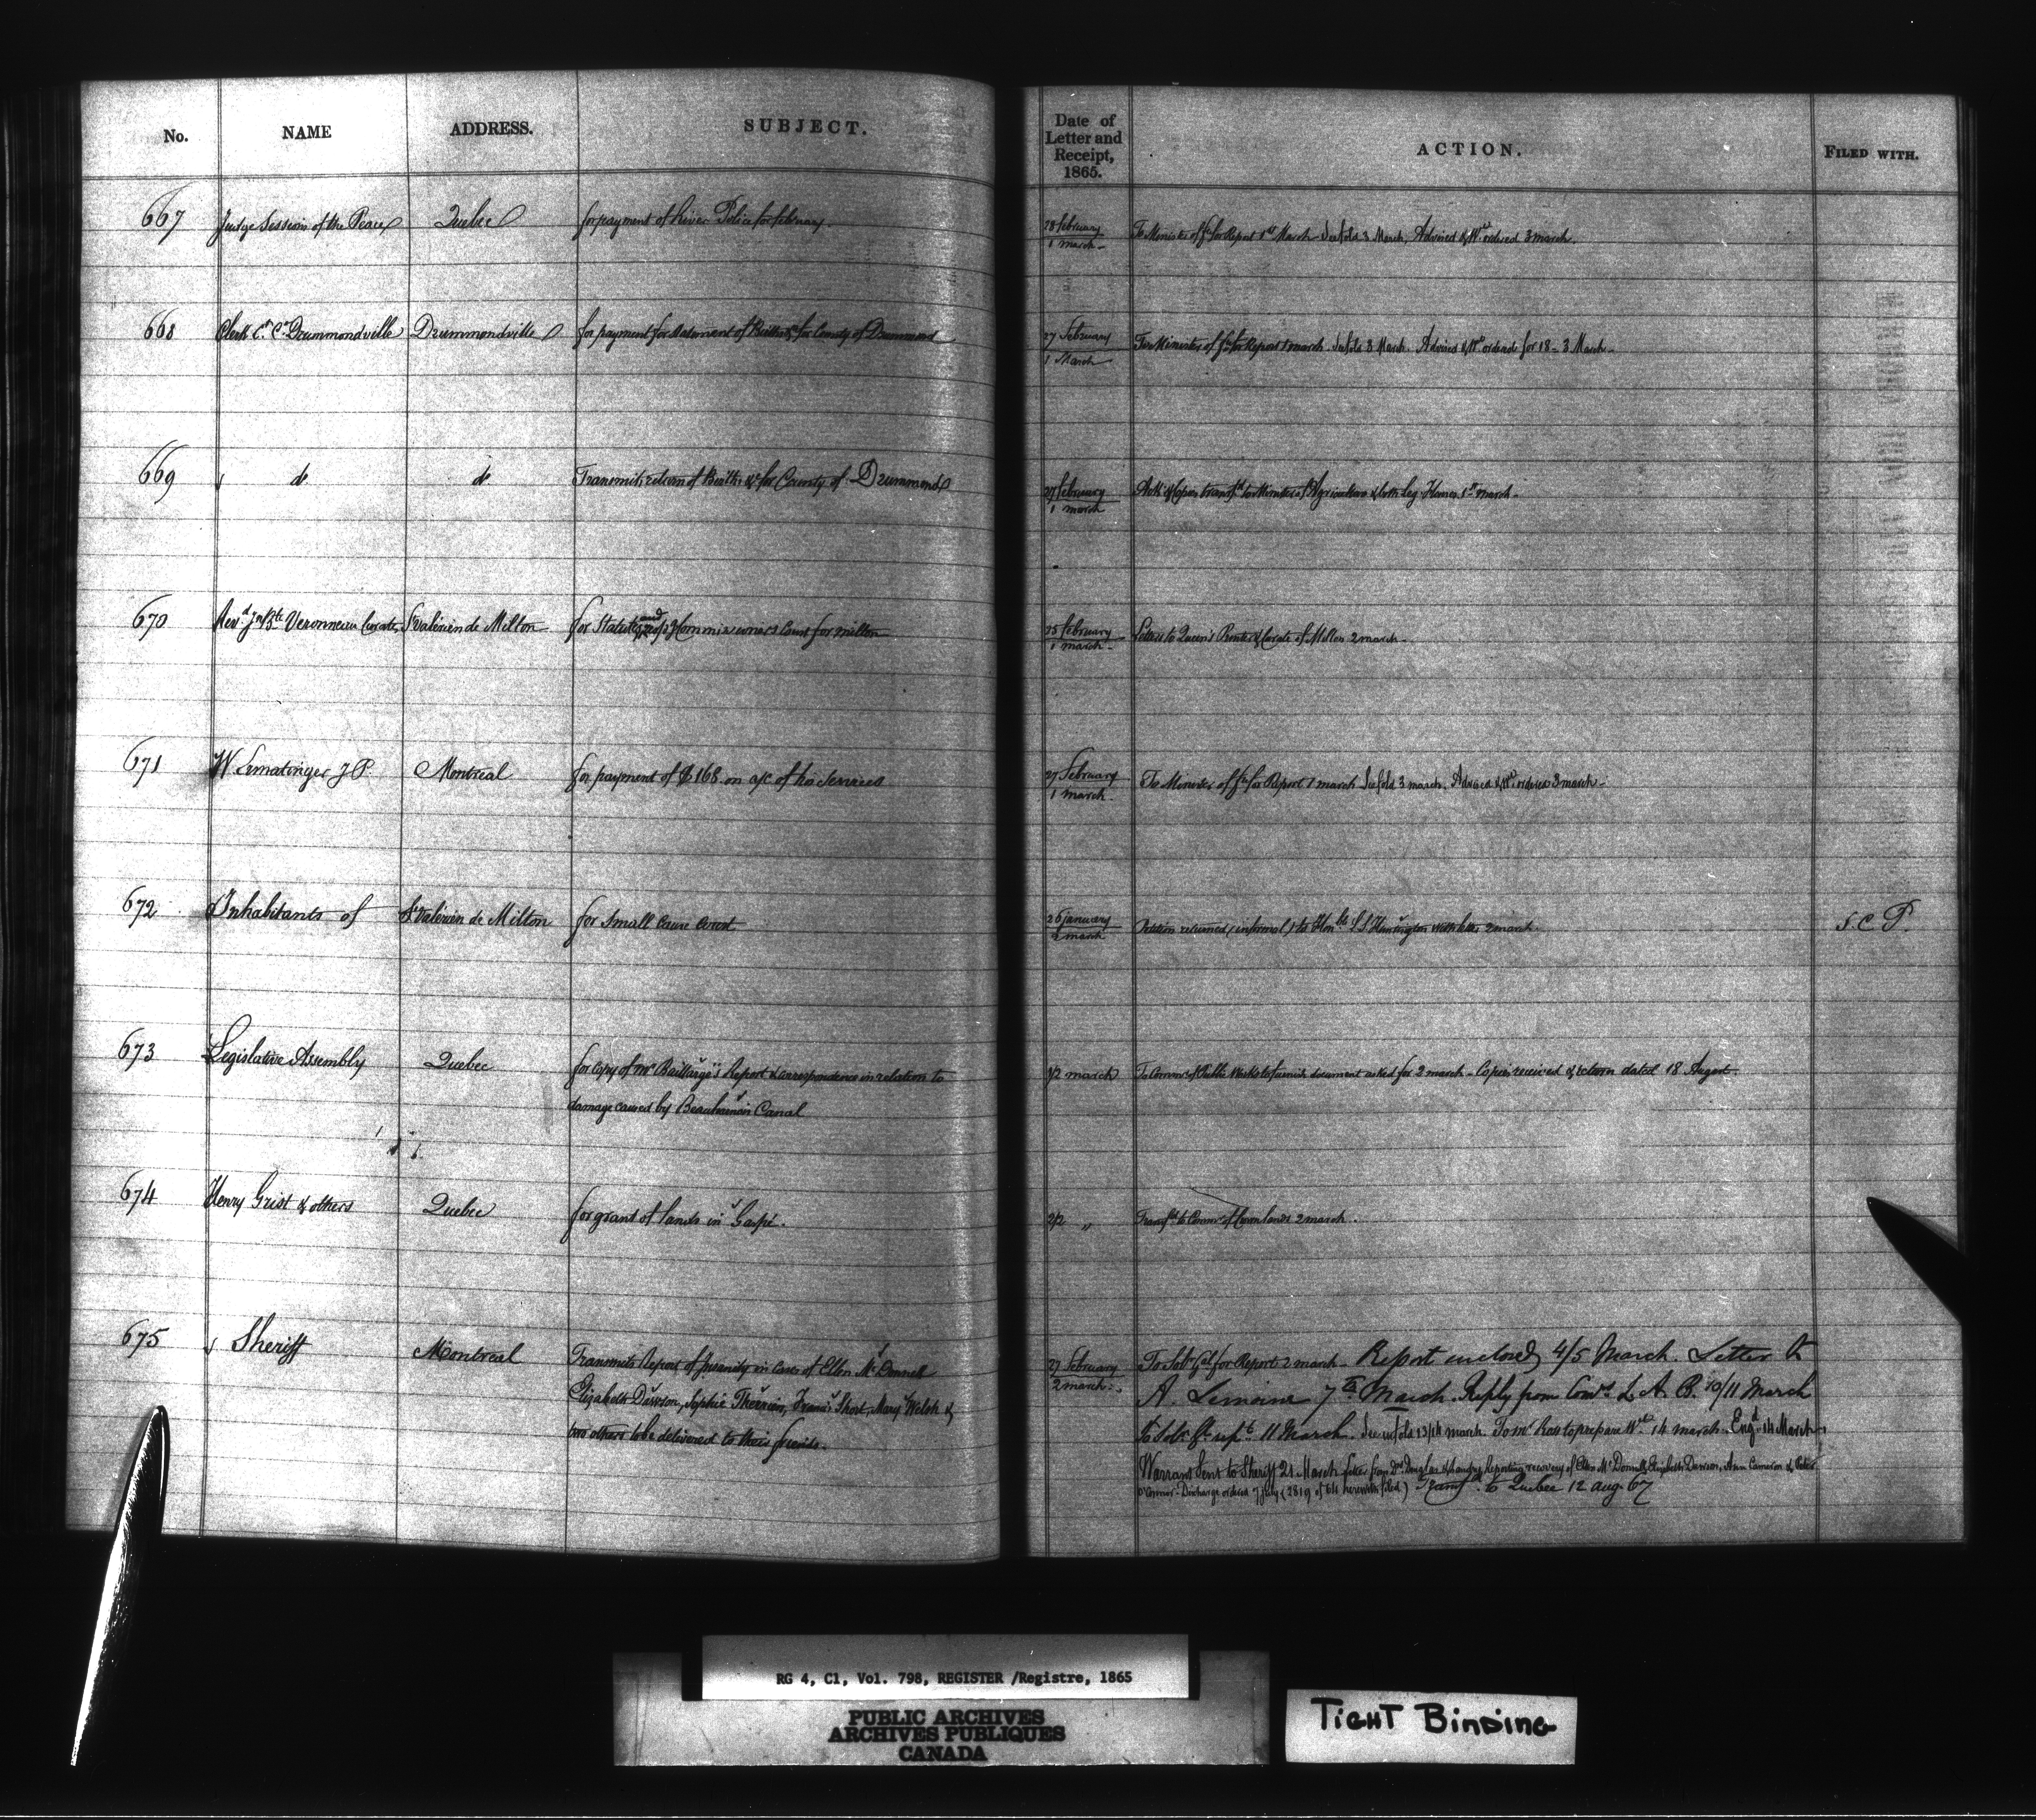 No. NAME ADDRESS. SUBJECT. Date of Letter and Receipt, 1865. ACTION. FILED WITH.
667 Judge Sessions of the Peace Quebec for payment of River Police for february. 28 february / 1 march To Minister of for Report 1st March 3 March. Advised & Wt ordered 3 march.
668 Clerk Ct Ct Drummondville Drummondville for payment for statement of for County of Drummond 27 February / 1 March Minister of for Report 1 march. 3 March. Advised & Wt for 18 - 3 March.
669 do do Transmits return of &c for County of Drummond 27 february / 1 march & Copies transfd to Minister of Agriculture & both Leg Houses 1st march.
670 Revd Jn Bte Veronneau Curate St Valérien de Milton for Statutes and Commissioners Court for milton 25 february / 1 march Letters to Queen's Printer & Curate of Milton 2 march.
671 W Ermatinger J P. Montreal for payment of $168. on a/c of his Services 27 February / 1 march. To Minister of for Report 1 march 3 march. Advised & Wt ordered 3 march.
672 Inhabitants of St Valérien de Milton for Small Cause Court 26 january / 2 march Petition returned (informal) to Honble L S Huntington with letter 2 march. S. C P.
673 Legislative Assembly Quebec for copy of Mr Baillargé's Report & correspondence in relation to 1/2 march To Commr of Public Works to furnish document asked for 2 march - Copies received & return dated 18 August.
damage caused by Beauharnois Canal
674 Henry Grist & others Quebec for grant of lands in Gaspé. 2/2 " Transfd to Commr of Crown lands 2 march.
675 Sheriff Montreal Transmits Report of Insanity in cases of Ellen McDonnell 27 February / 2 march. To Solr Gal for Report 2 march - Report enclosed 4/5 March. Letter to
Elizabeth Dawson, Sophie Therrien, Francis Short, Mary Welsh & A. Lemoine 7th March. Reply from L. A. B. 10/11 March
two others to be delivered to their friends. To Solr 11 March. 13/14 march. To Mr Ross to prepare Wt 14 march. Engd 14 March.
Warrant Sent to Sheriff 21 March Letter from Drs Douglas & Landry reporting recovery of Ellen McDonnell, Elizabeth Dawson, Ann Cameron & Peter
O'Connor - Discharge ordered 7 July (2819 of 64 herewith filed) Transfd to Quebec 12 aug. 67
RG 4, C1, Vol. 798, REGISTER /Registre, 1865
PUBLIC ARCHIVES
ARCHIVES PUBLIQUES
CANADA
TIGHT BINDING